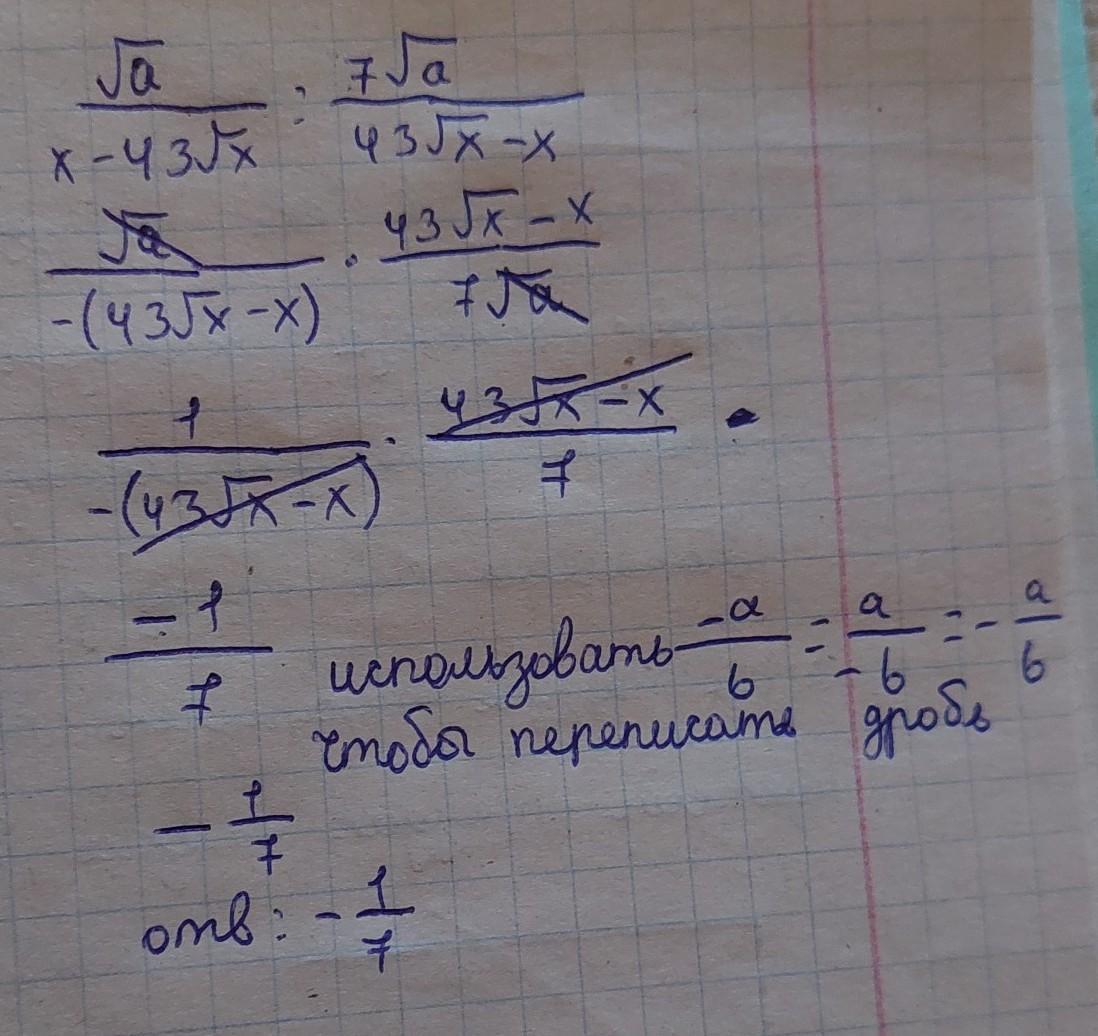 √a/(x-43√x) : 7√a/(43√x-x)
√a/(-(43√x-x)) · (43√x-x)/(7√a)
1/(-(43√x-x)) · (43√x-x)/7
-1/7 использовать -a/b = a/-b = -a/b
чтобы переписать дробь
-1/7
отв: -1/7